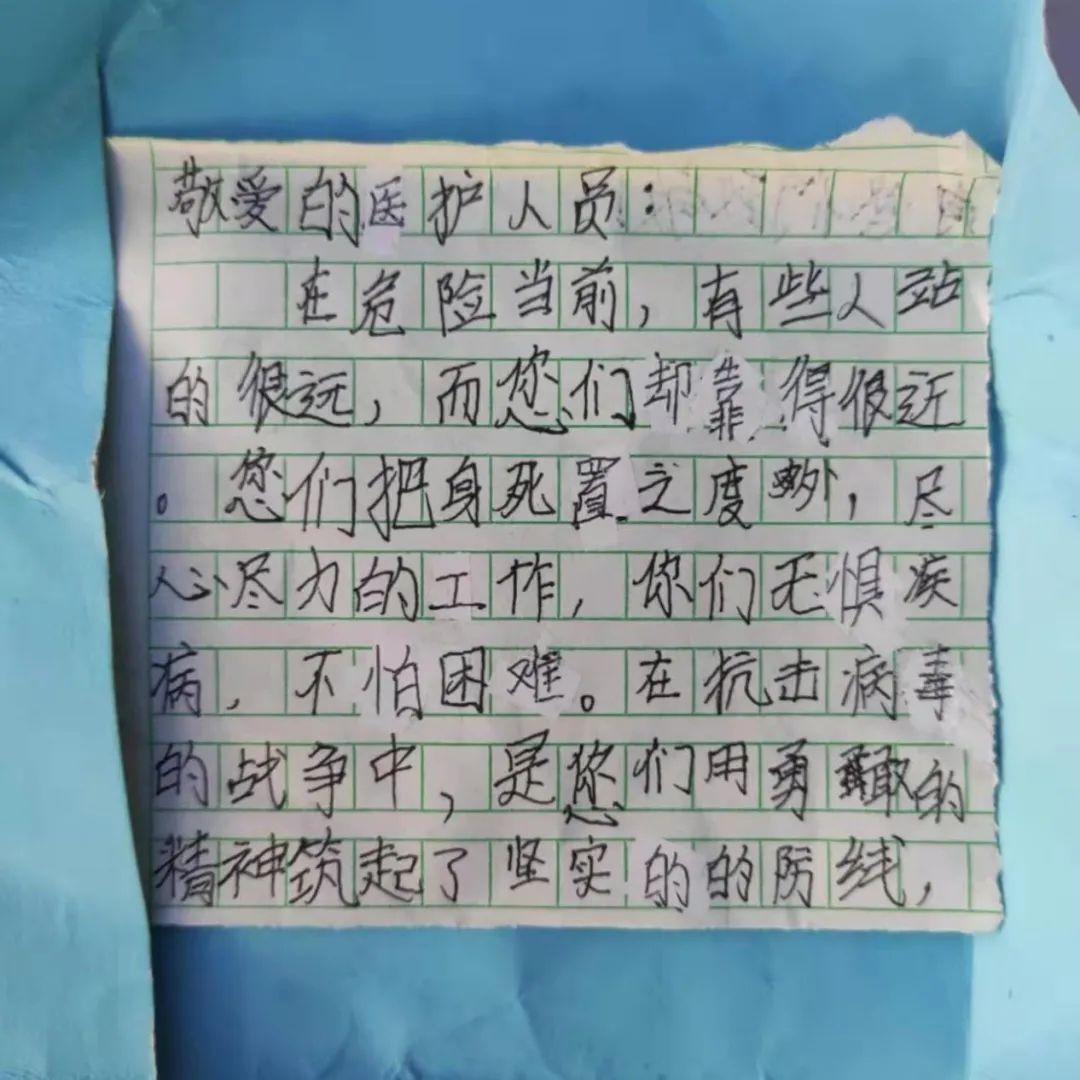 敬爱的医护人员：
在危险当前，有些人站
的很远，而您们却靠得很近
。您们把身死置之度外，尽
心尽力的工作，你们无惧疾
病，不怕困难。在抗击病毒
的战争中，是您们用勇敢的
精神筑起了坚实的的防线，